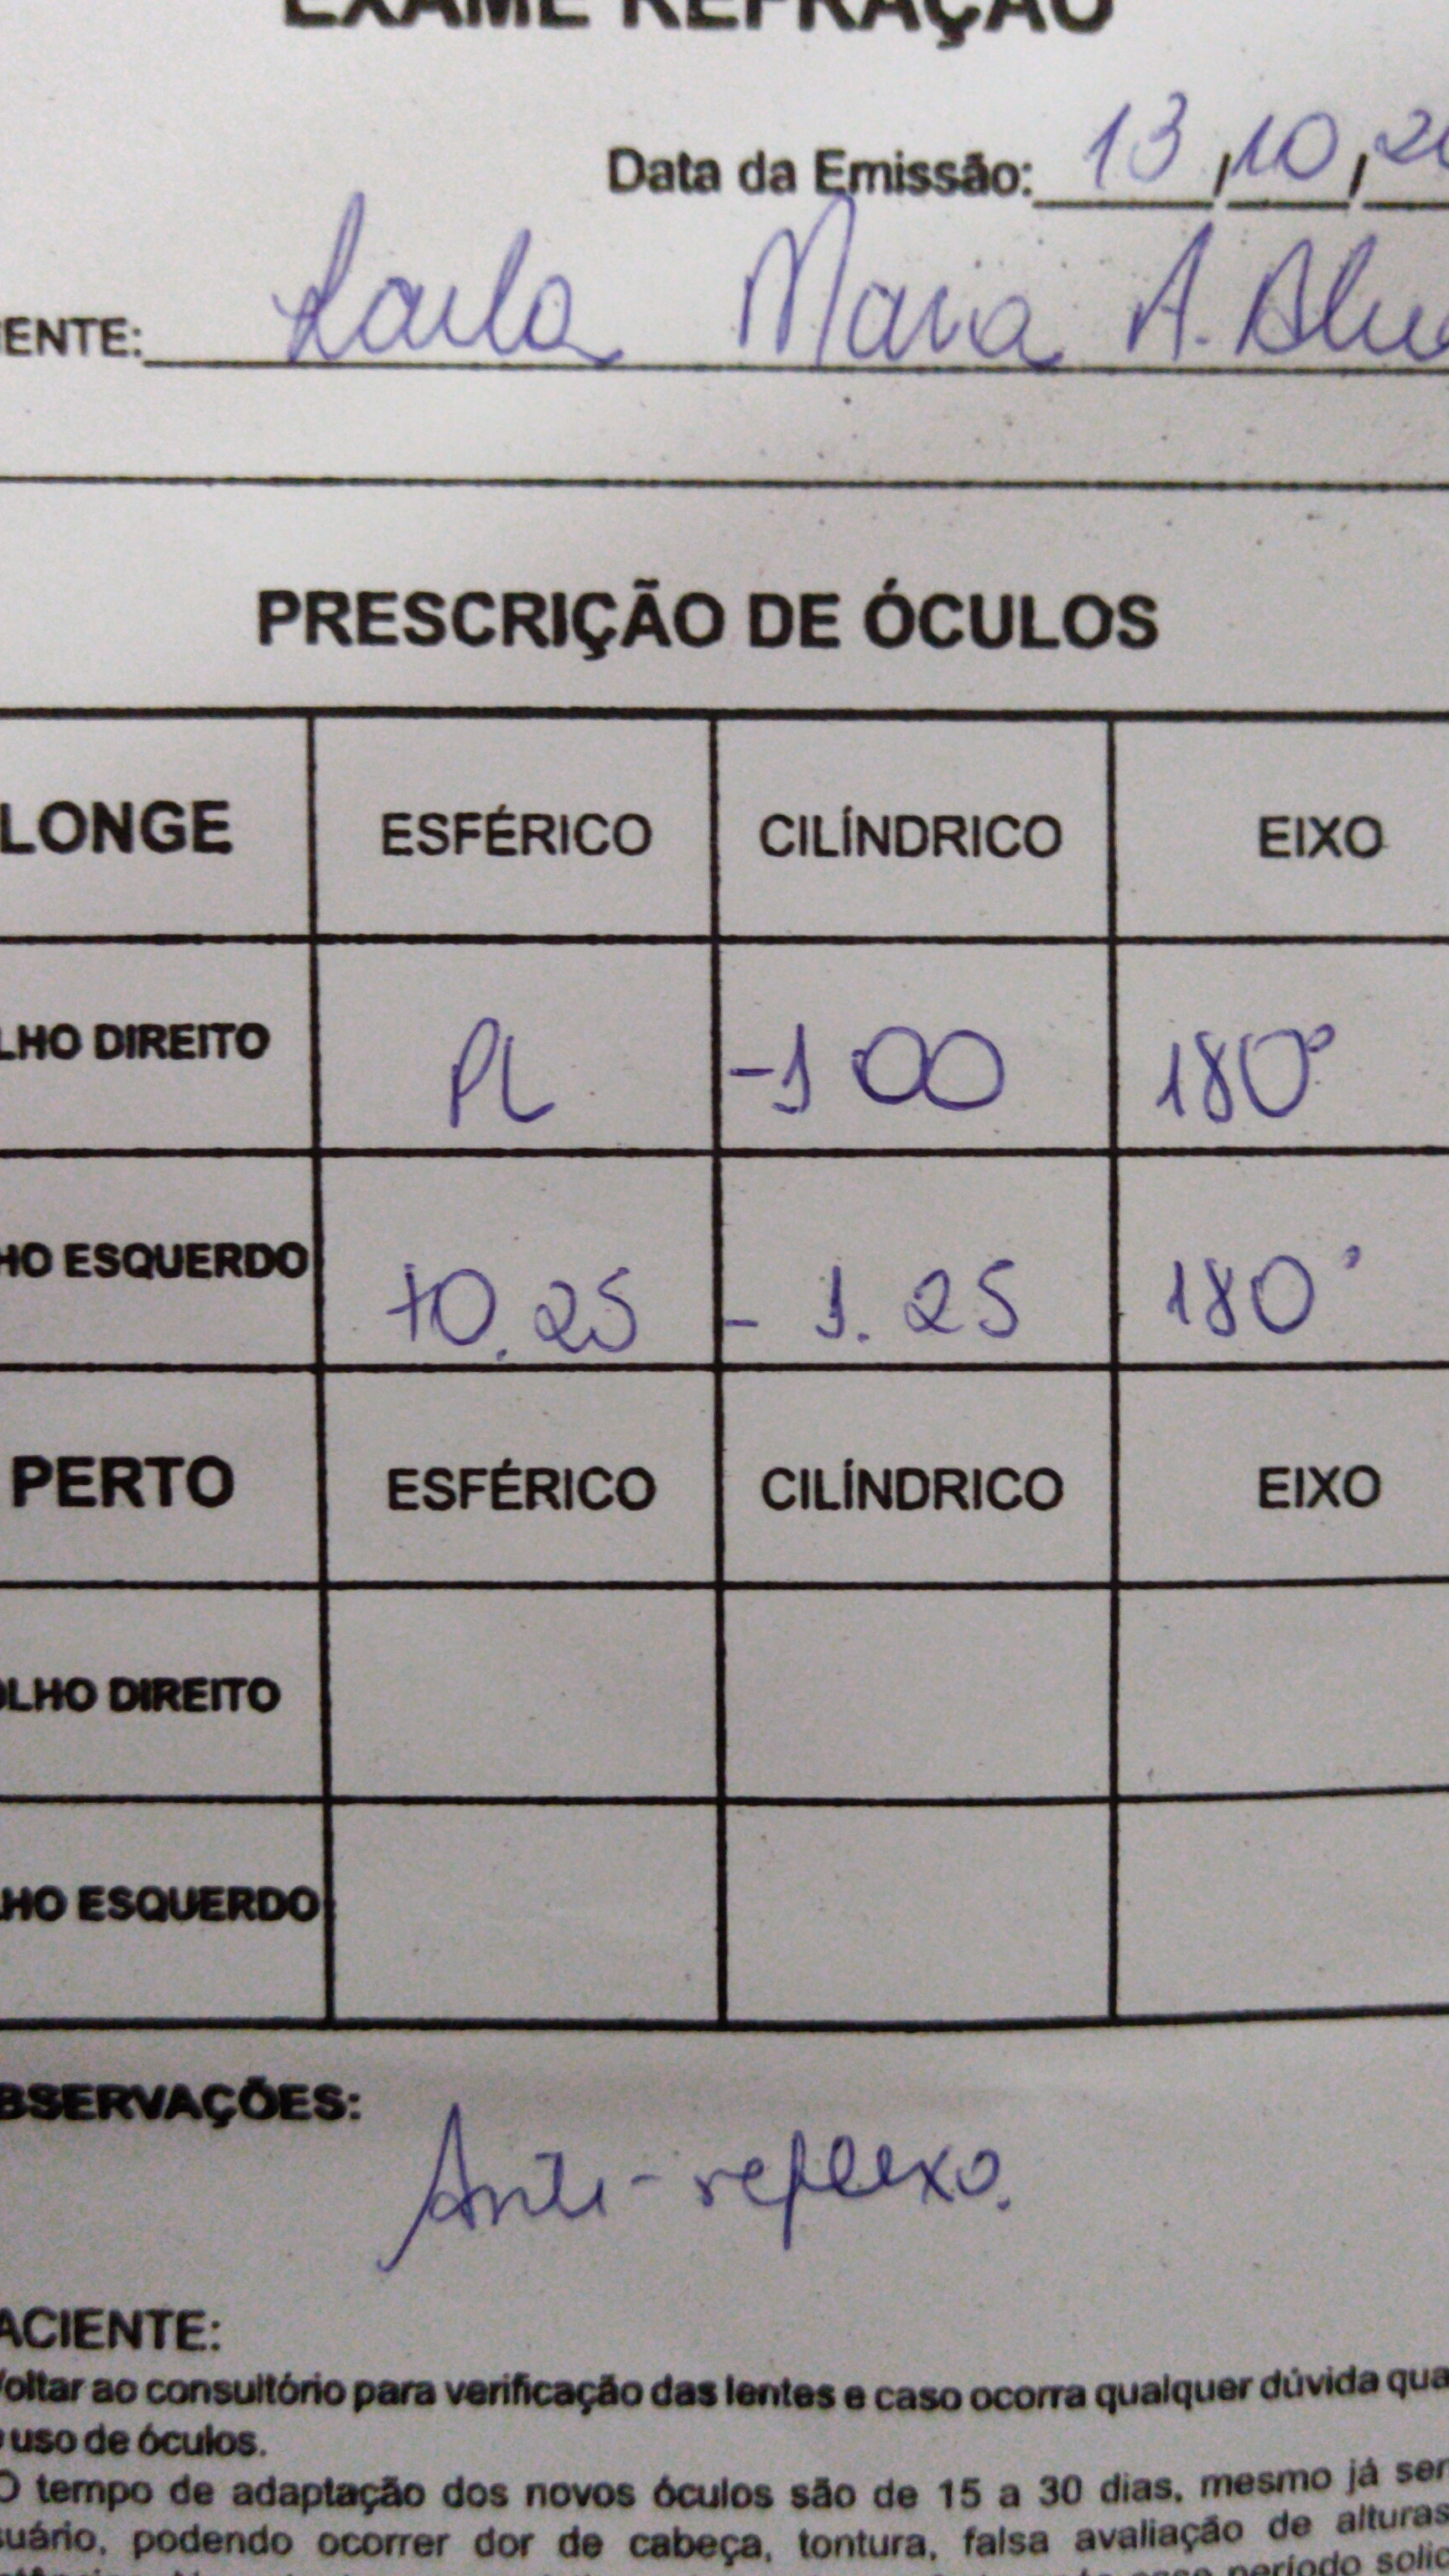 EXAME REFRAÇÃO
Data da Emissão: 13, 10, 20
IENTE: Karla Maria A. Alve
PRESCRIÇÃO DE ÓCULOS
LONGE ESFÉRICO CILÍNDRICO EIXO
LHO DIREITO PL -1 00 180°
HO ESQUERDO +0.25 - 1.25 180°
PERTO ESFÉRICO CILÍNDRICO EIXO
OLHO DIREITO
LHO ESQUERDO
BSERVAÇÕES:
Anti-reflexo.
ACIENTE:
Voltar ao consultório para verificação das lentes e caso ocorra qualquer dúvida qua
uso de óculos.
O tempo de adaptação dos novos óculos são de 15 a 30 dias, mesmo já ser
suário, podendo ocorrer dor de cabeça, tontura, falsa avaliação de alturas
esse período solic